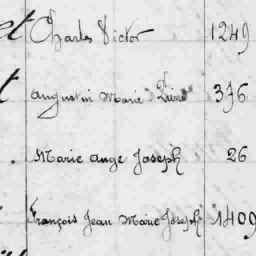 et Charles Victor 1249
Augustin Marie 376
Marie Ange Joseph 26
François Jean Marie Joseph 1409